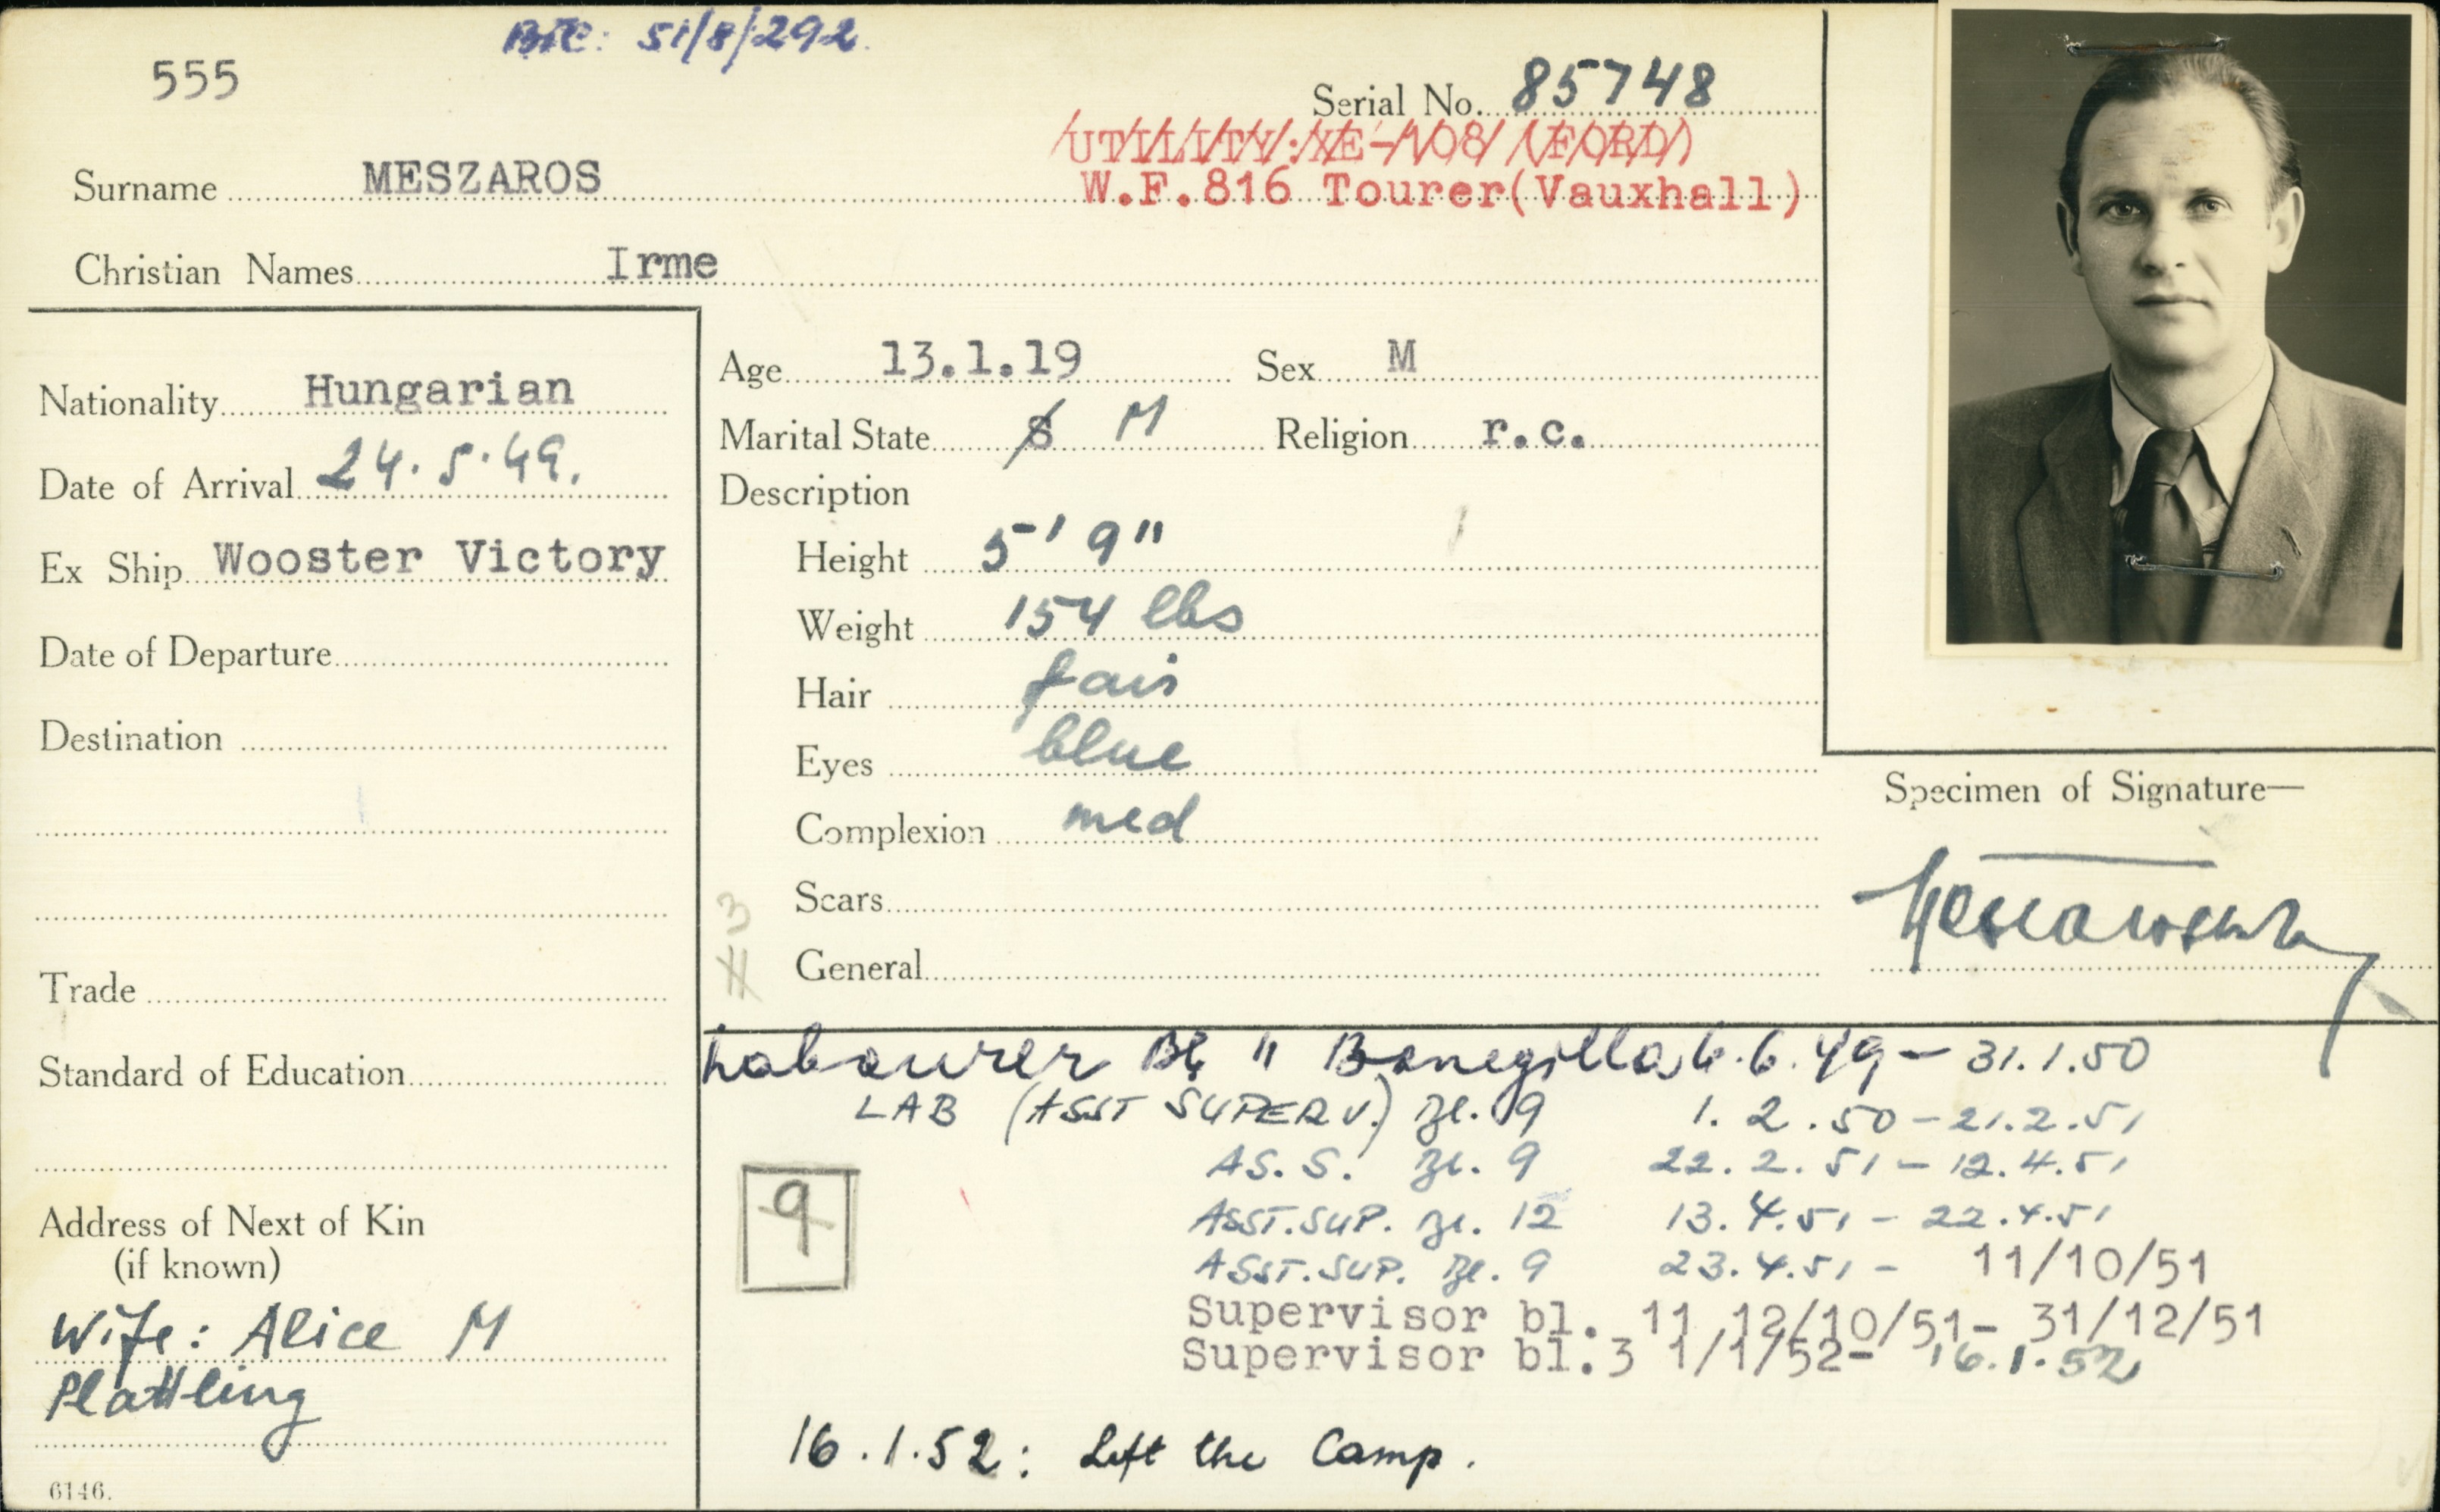 555
BTC: 51/8/292.
Serial No. 85748
UTILITY:XE-108 (FORD)
W.F.816 Tourer(Vauxhall)
Surname MESZAROS
Christian Names Irme
Nationality Hungarian
Date of Arrival 24.5.49.
Ex Ship Wooster Victory
Date of Departure
Destination
Trade
Standard of Education
Address of Next of Kin
(if known)
Wife: Alice M
Plattling
6146.
Age 13.1.19 Sex M
Marital State S M Religion r.c.
Description
Height 5' 9"
Weight 154 lbs
Hair fair
Eyes blue
Complexion med
Scars
3
General
Specimen of Signature—
Labourer Bl 11 Bonegilla 6.6.49 - 31.1.50
LAB (ASST SUPERV.) Bl. 9 1.2.50 - 21.2.51
AS. S. Bl. 9 22.2.51 - 12.4.51
ASST.SUP. Bl. 12 13.4.51 - 22.4.51
ASST.SUP. Bl. 9 23.4.51 - 11/10/51
Supervisor bl. 11 12/10/51- 31/12/51
Supervisor bl.3 1/1/52- 16.1.52
9
16.1.52: Left the Camp.